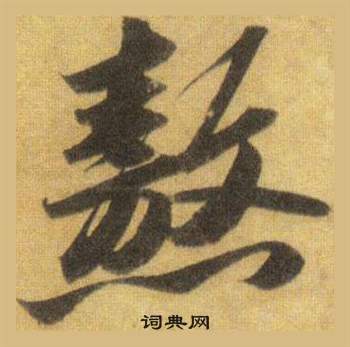 熬
词典网